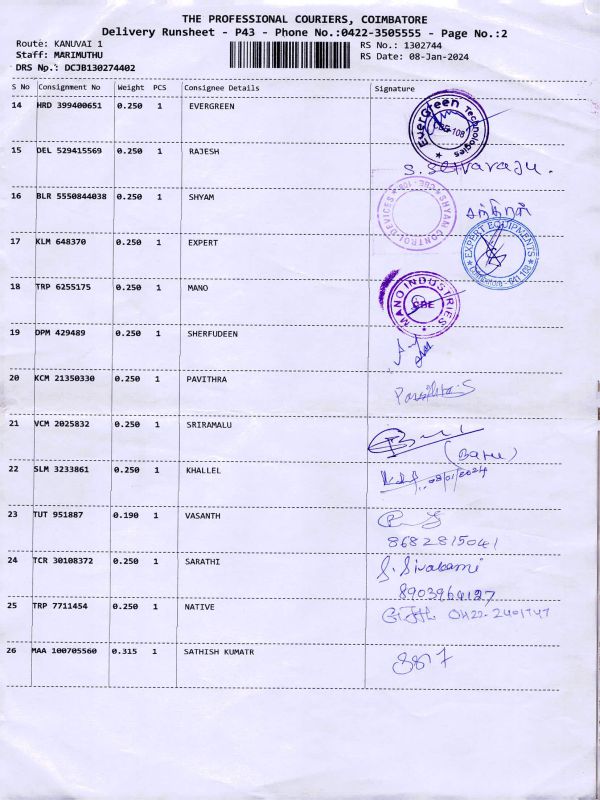 THE PROFESSIONAL COURIERS, COIMBATORE
Delivery Runsheet - P43 - Phone No.:0422-3505555 - Page No.:2
Route: KANUVAI 1 RS No.: 1302744
Staff: MARIMUTHU RS Date: 08-Jan-2024
DRS No.: DCJB130274402
S No Consignment No Weight PCS Consignee Details Signature
14 HRD 399400651 0.250 1 EVERGREEN EverGreen Technologies CBE-108
15 DEL 529415569 0.250 1 RAJESH S. Selvaraju.
16 BLR 5550844038 0.250 1 SHYAM SHYAN CONTROL DEVICES CBE-108
17 KLM 648370 0.250 1 EXPERT EXPERT EQUIPMENTS
18 TRP 6255175 0.250 1 MANO MANO INDUSTRIES CBE
19 DPM 429489 0.250 1 SHERFUDEEN
20 KCM 21350330 0.250 1 PAVITHRA Pavithra.S
21 VCM 2025832 0.250 1 SRIRAMALU
(Babu)
22 SLM 3233861 0.250 1 KHALLEL 08/01/2024
23 TUT 951887 0.190 1 VASANTH
8682815041
24 TCR 30108372 0.250 1 SARATHI S. Sivakami
8903964127
25 TRP 7711454 0.250 1 NATIVE 0422-2401747
26 MAA 100705560 0.315 1 SATHISH KUMATR